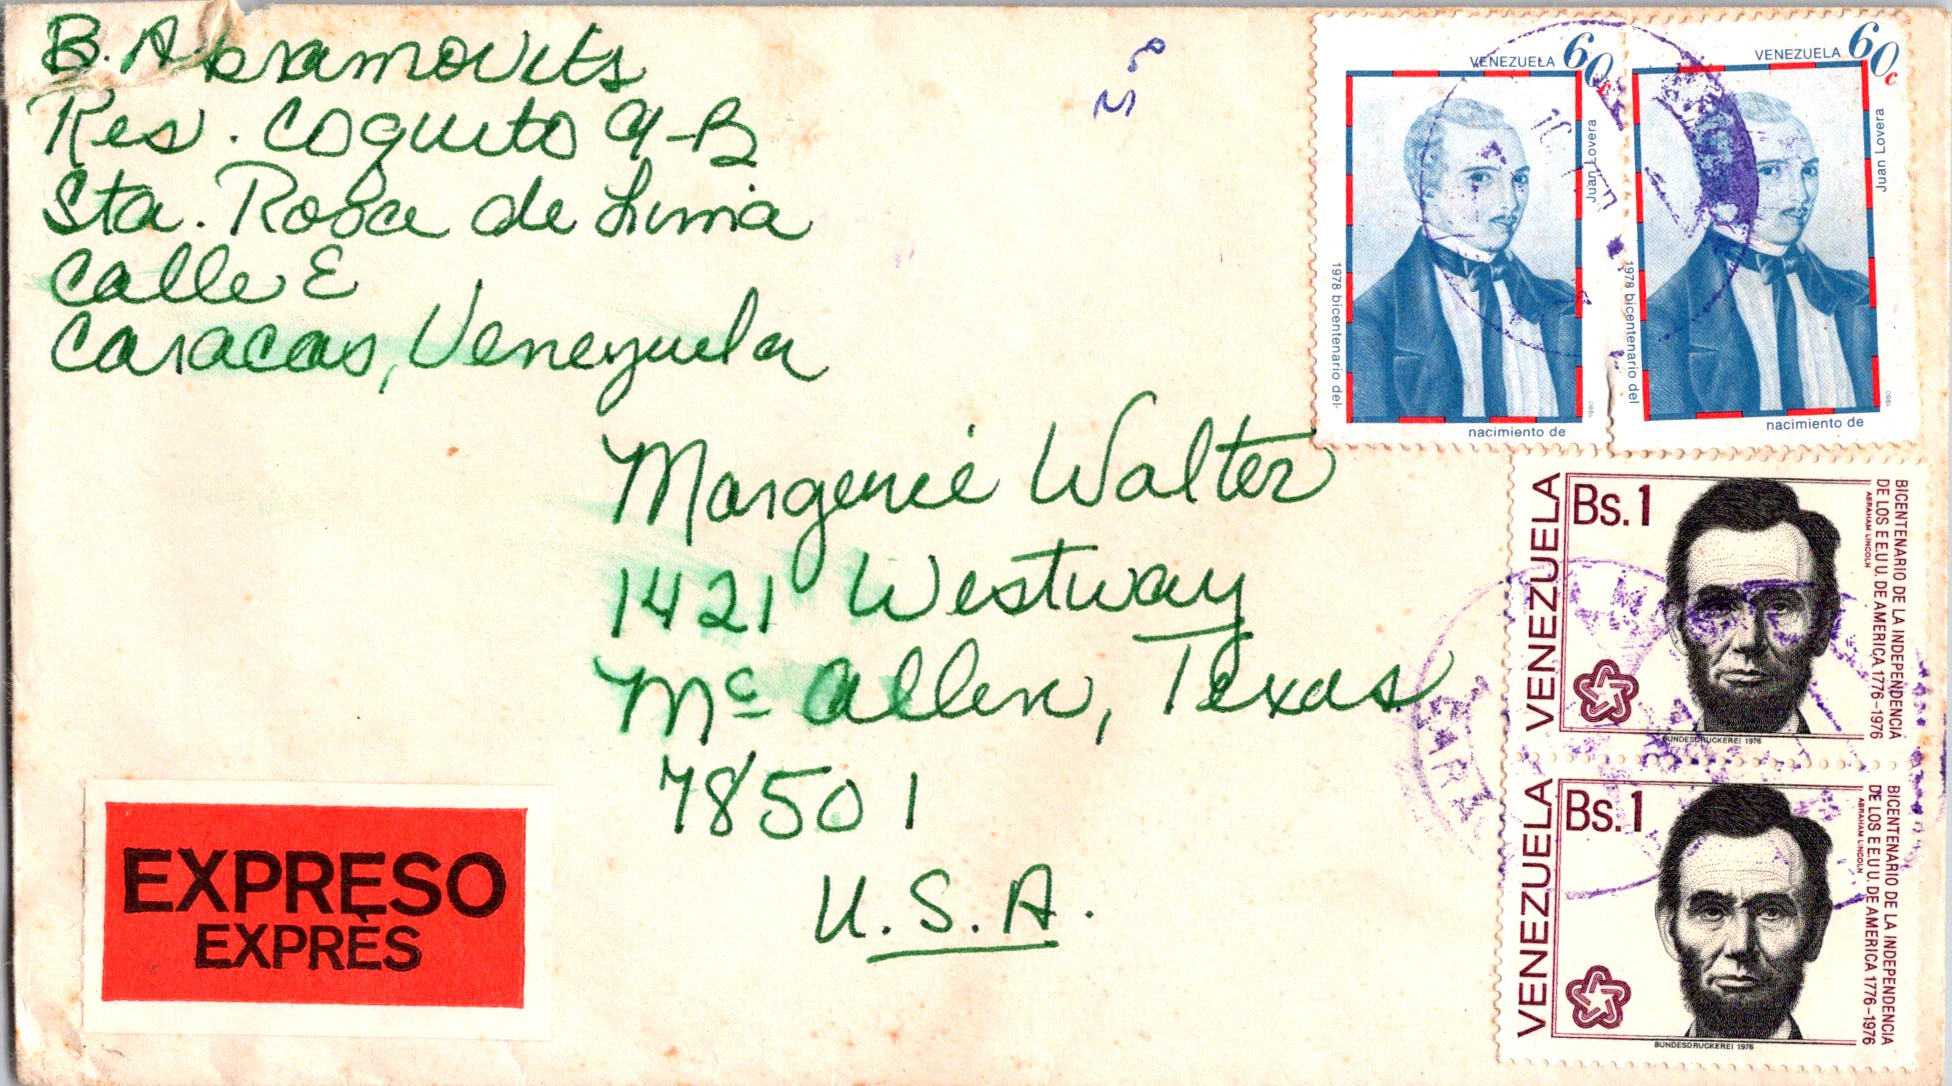 B. Abramovits
Res. Coquito 9-B
Sta. Rosa de Lima
Calle E
Caracas, Venezuela
Margerie Walter
1421 Westway
Mc Allen, Texas
78501
U.S.A.
EXPRESO
EXPRÈS
VENEZUELA 60c
Juan Lovera
1978 bicentenario del
nacimiento de
1980
VENEZUELA 60c
Juan Lovera
1978 bicentenario del
nacimiento de
1980
VENEZUELA
Bs.1
BICENTENARIO DE LA INDEPENDENCIA
DE LOS E.E.U.U. DE AMERICA 1776-1976
ABRAHAM LINCOLN
BUNDESDRUCKEREI 1976
VENEZUELA
Bs.1
BICENTENARIO DE LA INDEPENDENCIA
DE LOS E.E.U.U. DE AMERICA 1776-1976
ABRAHAM LINCOLN
BUNDESDRUCKEREI 1976